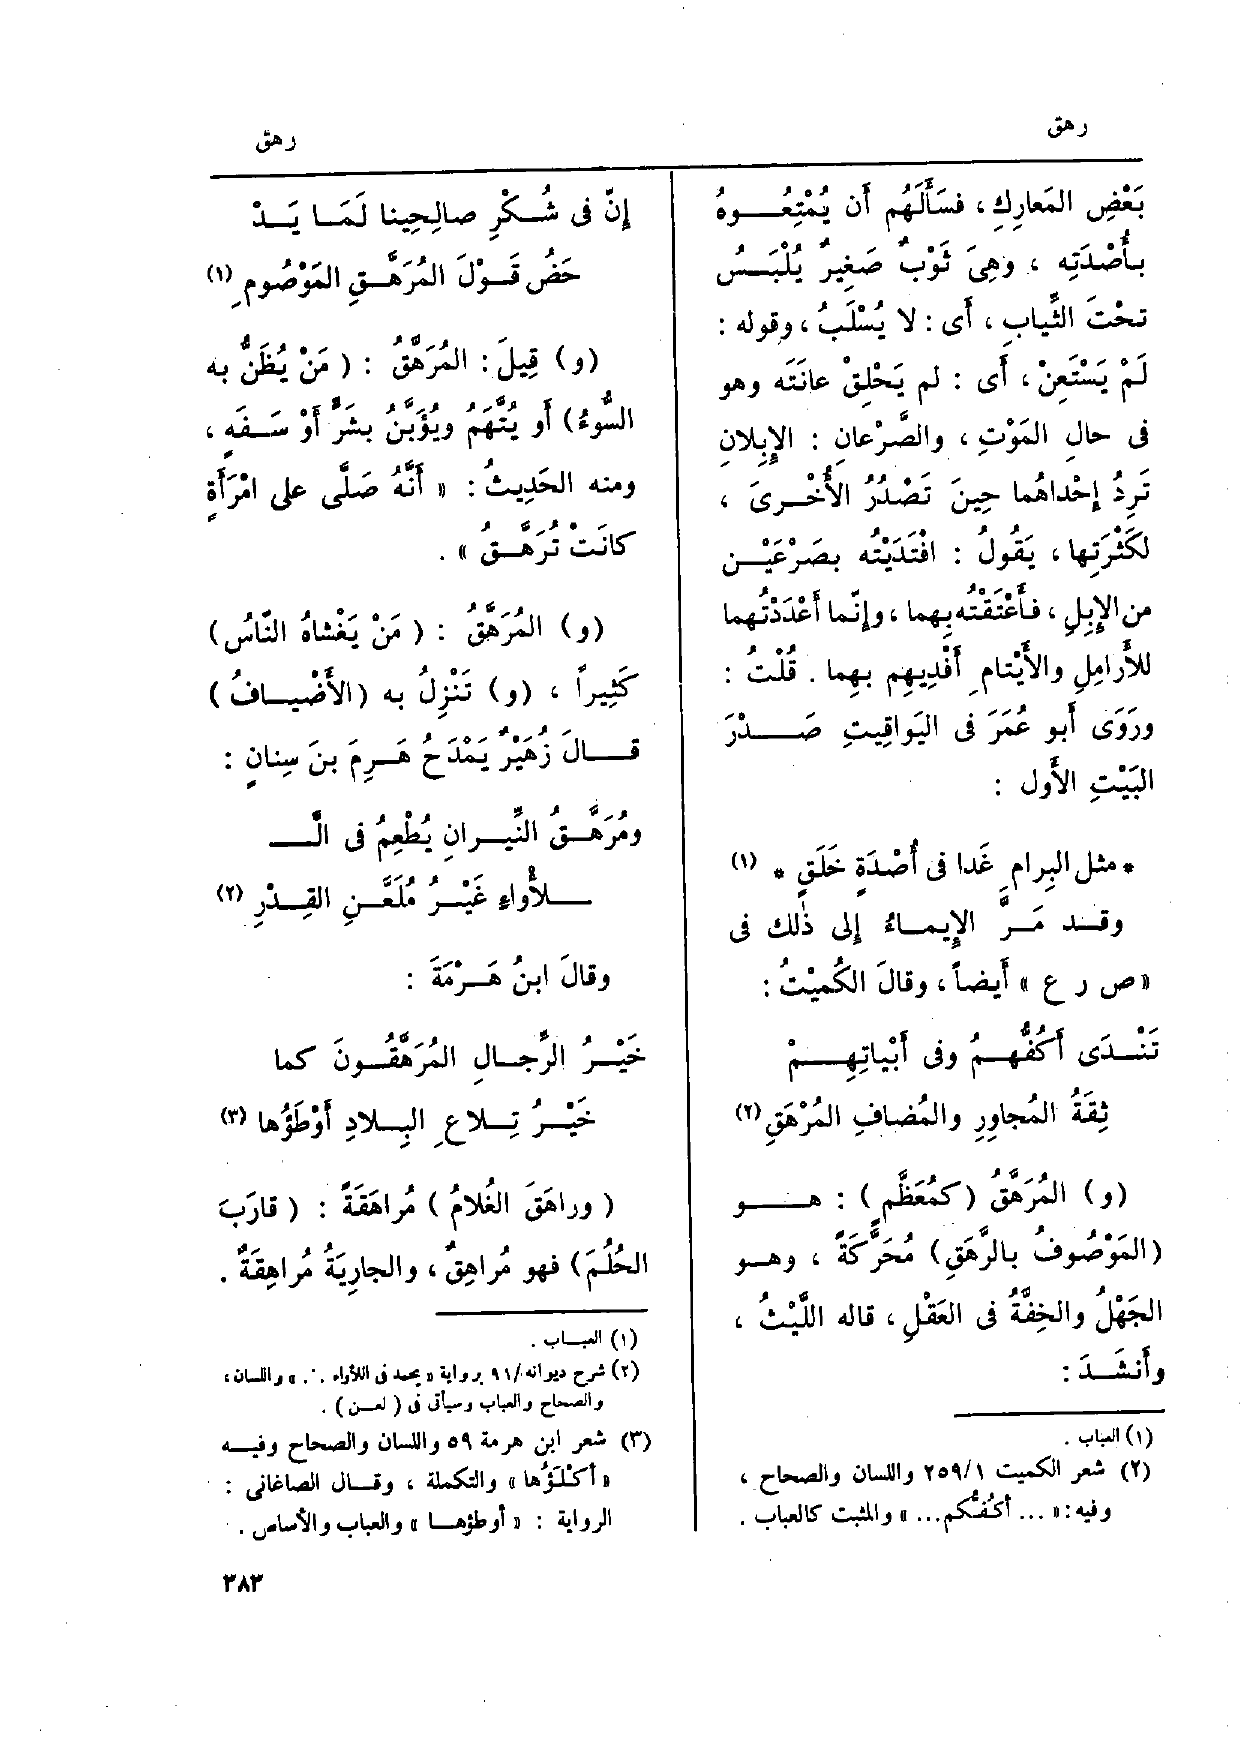 رهق
رهق
بَعْضِ المَعارِكِ ، فسَأَلَهُم أَن يُمْتِعُـــوهُ
بـأُصْدَتِه ، وهِىَ ثَوْبٌ صَغِيرٌ يُلْبَــسُ
تحْتَ الثِّيابِ ، أَى : لا يُسْلَبُ ، وقوله :
لَمْ يَسْتَعِنْ ، أَى : لم يَحْلِقْ عانَتَه وهو
فى حالِ المَوْتِ ، والصَّرْعانِ : الإِبِلانِ
تَرِدُ إِحْداهُما حِينَ تَصْدُرُ الأُخْـرىَ ،
لكَثْرَتِها ، يَقُولُ : افْتَدَيْتُه بصَرْعَيْـن
من الإِبِلِ ، فأَعْتَقْتُه بِهِما ، وإِنَّما أَعْدَدْتُهما
للأَرامِلِ والأَيْتامِ أَفْدِيهِم بِهِما . قُلْتُ :
ورَوَى أَبو عُمَرَ فى اليَواقِيتِ صَـــدْرَ
البَيْتِ الأَول :
* مثل البِرامِ غَدا فى أُصْدَةٍ خَلَقٍ * (١)
وقــد مَـرَّ الإِيمــاءُ إِلى ذٰلك فى
« ص ر ع » أَيضاً ، وقالَ الكُمَيْتُ :
تَنْــدَى أَكُفُّهــمُ وفى أَبْياتِهِــــمْ
ثِقَةُ المُجاوِرِ والمُضافِ المُرْهَقِ (٢)
(و) المُرَهَّقُ (كمُعَظَّمٍ) : هــــو
(المَوْصُوفُ بالرَّهَقِ) مُحَرَّكَةً ، وهــو
الجَهْلُ والخِفَّةُ فى العَقْلِ ، قاله اللَّيْثُ ،
وأَنشَــدَ :
(١) العباب .
(٢) شعر الكميت ٢٥٩/١ واللسان والصحاح ،
وفيه : « ... أَكُفُّكم ... » والمثبت كالعباب .
إِنَّ فى شُـكْرِ صالِحِينا لَمَـا يَــدْ
حَضُ قَـوْلَ المُرَهَّـقِ المَوْصُومِ (١)
(و) قِيلَ : المُرَهَّقُ : ( مَنْ يُظَنُّ به
السُّوءُ) أَو يُتَّهَمُ ويُؤَبَّنُ بشَرٍّ أَوْ سَـفَهٍ ،
ومنه الحَدِيثُ : « أَنَّهُ صَلَّى على امْرَأَةٍ
كانَتْ تُرَهَّـقُ » .
(و) المُرَهَّقُ : ( مَنْ يَغْشاهُ النَّاسُ)
كَثِيراً ، (و) تَنْزِلُ به (الأَضْيـافُ)
قــالَ زُهَيْرٌ يَمْدَحُ هَـرِمَ بنَ سِنانٍ :
ومُرَهَّـقُ النِّيـرانِ يُطْعِمُ فى الْـــ
ـــلَأْواءِ غَيْـرُ مُلَعَّـنِ القِـدْرِ (٢)
وقالَ ابنُ هَـرْمَةَ :
خَيْــرُ الرِّجـالِ المُرَهَّقُـونَ كما
خَيْـرُ تِـلاعِ البِـلادِ أَوْطَؤُها (٣)
( وراهَقَ الغُلامُ ) مُراهَقَةً : ( قارَبَ
الحُلُمَ) فهو مُراهِقٌ ، والجارِيَةُ مُراهِقَةٌ .
(١) العبـاب .
(٢) شرح ديوانه /٩١ برواية « يحمد فى اللأواء . . » واللسان ،
والصحاح والعباب وسيأتى فى ( لعـن ) .
(٣) شعر ابن هرمة ٥٩ واللسان والصحاح وفيــه
« أَكْلَؤُها » والتكملة ، وقــال الصاغانى :
الرواية : « أَوطؤهـا » والعباب والأساس .
٣٨٣